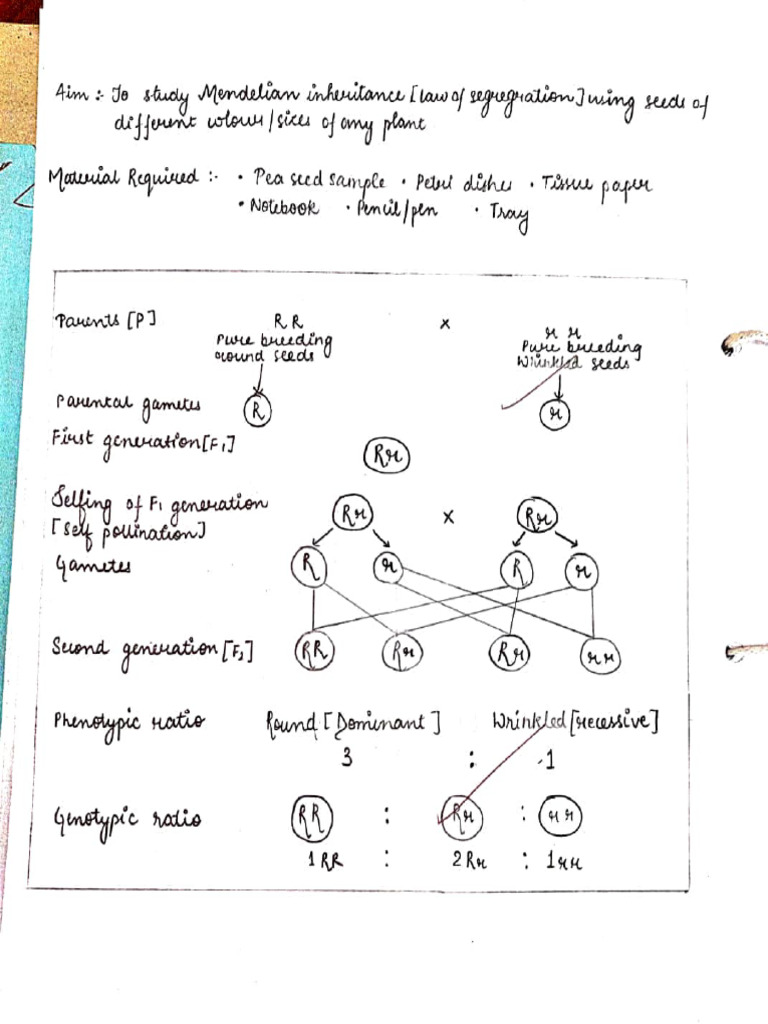 Aim :- To study Mendelian inheritance [law of segregration] using seeds of
different colour/sizes of any plant
Material Required :- • Pea seed sample • Petri dishes • Tissue paper
• Notebook • Pencil/pen • Tray
Parents [P] RR x rr
Pure breeding Pure breeding
round seeds Wrinkled seeds
Parental gametes R r
First generation [F1] Rr
Selfing of F1 generation Rr x Rr
[self pollination]
Gametes R r R r
Second generation [F2] RR Rr Rr rr
Phenotypic ratio Round [Dominant] Wrinkled [recessive]
3 : 1
Genotypic ratio RR : Rr : rr
1RR : 2Rr : 1rr